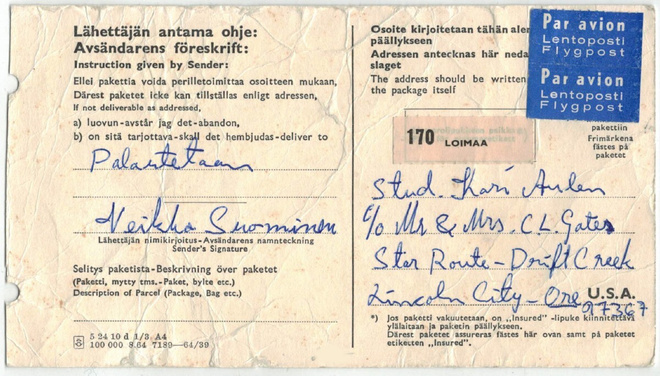 Lähettäjän antama ohje:
Avsändarens föreskrift:
Instruction given by Sender:
Ellei pakettia voida perilletoimittaa osoitteen mukaan,
Därest paketet icke kan tillställas enligt adressen,
If not deliverable as addressed,
a) luovun-avstår jag det-abandon,
b) on sitä tarjottava-skall det hembjudas-deliver to
Palautetaan
Veikko Suominen
Lähettäjän nimikirjoitus-Avsändarens namnteckning
Sender's Signature
Selitys paketista-Beskrivning över paketet
(Paketti, mytty tms.-Paket, bylte etc.)
Description of Parcel (Package, Bag etc.)
5 24 10 d 1/3 A4
100 000 8.64 7189—64/39
Osoite kirjoitetaan tähän
päällykseen
Adressen antecknas här
slaget
The address should be written
the package itself
Par avion
Lentoposti
Flygpost
Par avion
Lentoposti
Flygpost
pakettiin
Frimärkena
fästes på
paketet
170 LOIMAA
Stud. Kari Aulen
c/o Mr & Mrs. C.L. Gates
Star Route - Drift Creek
Lincoln City - Ore U.S.A.
97367
*) Jos paketti vakuutetaan, on „Insured" -lipuke kiinnitettävä
ylälaitaan ja paketin päällykseen.
Därest paketet assureras fästes här ovan samt på paketet
etiketten „Insured".